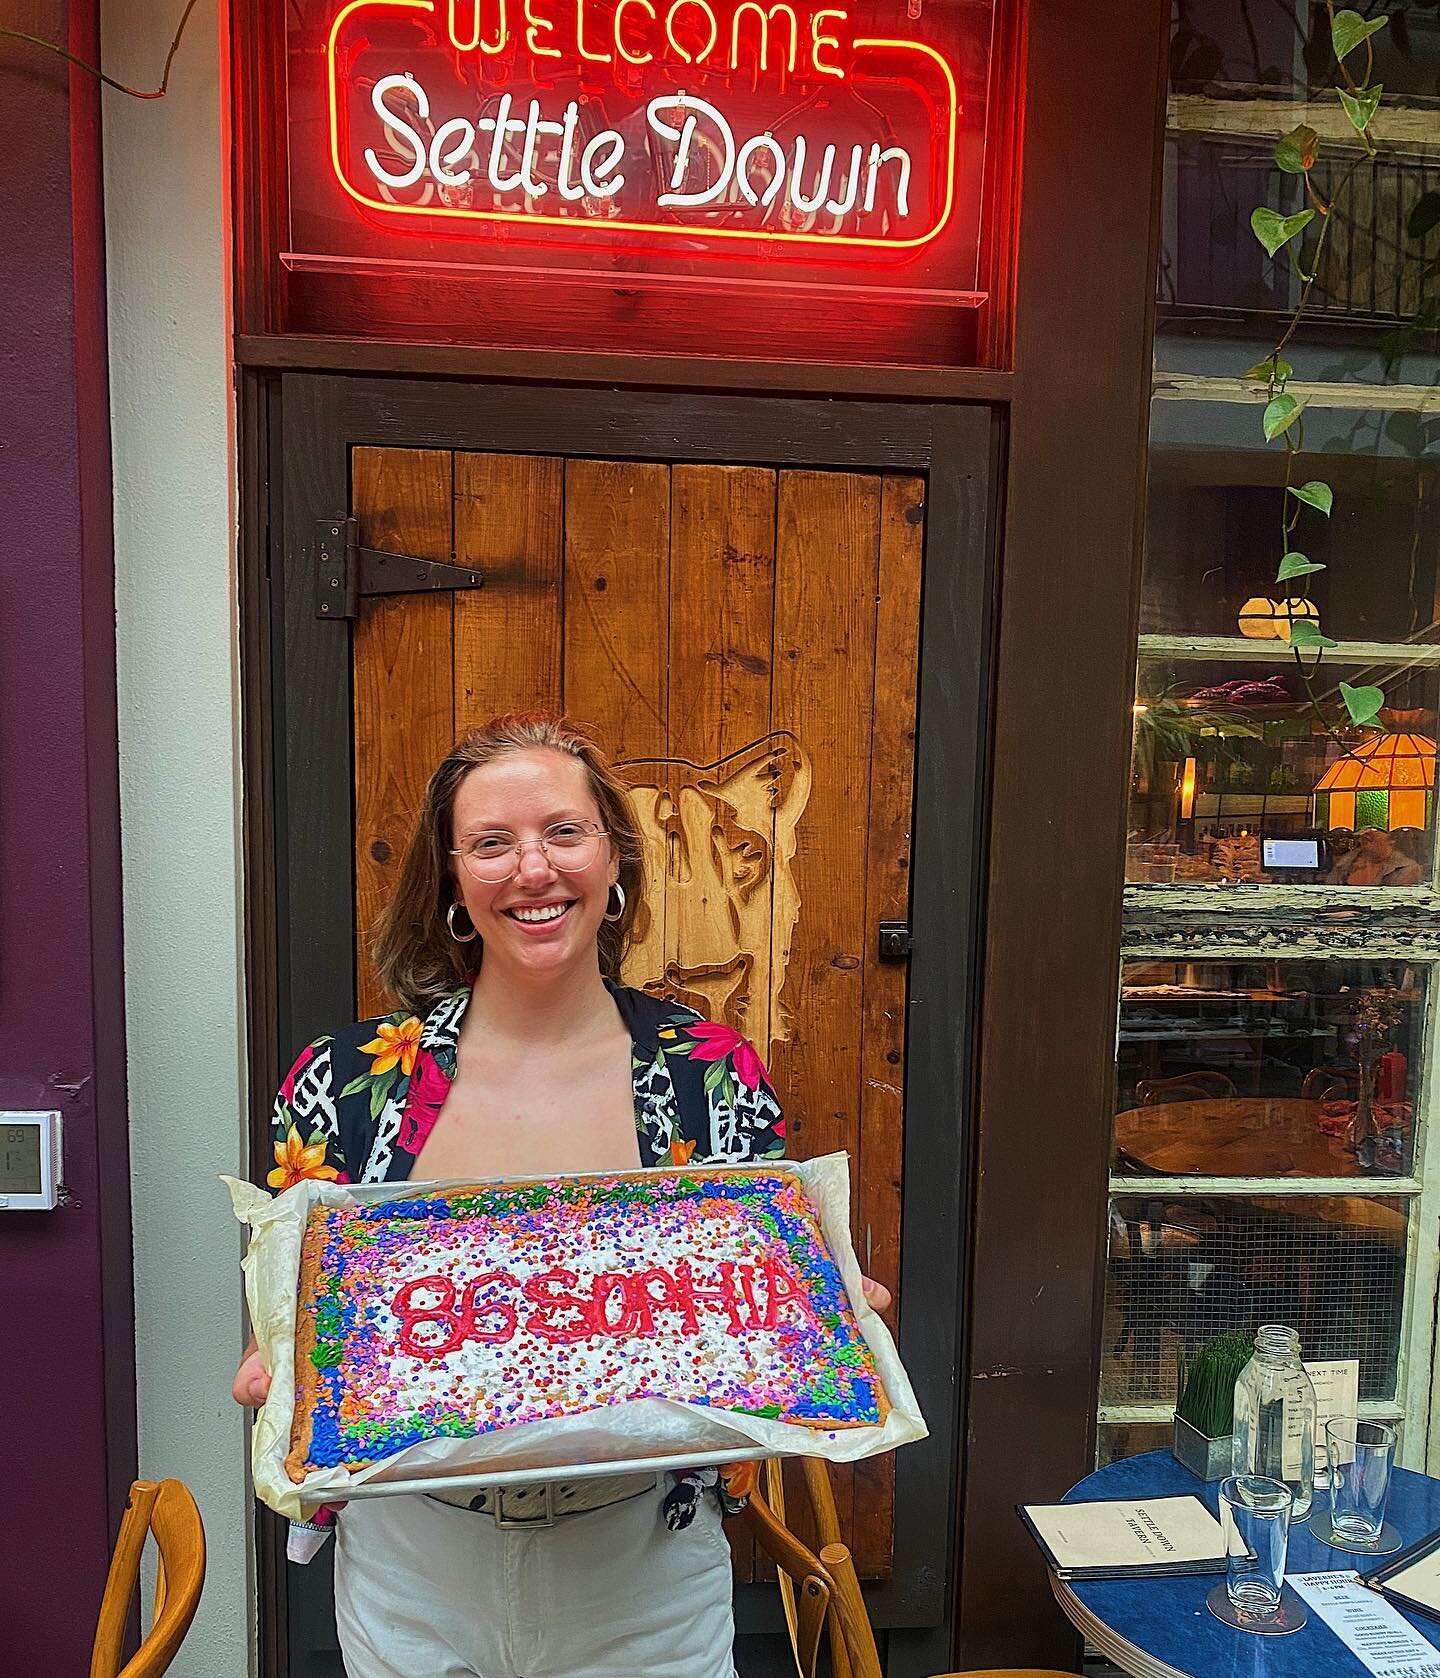 WELCOME
Settle Down
69
86 SOPHIA
NEXT TIME
SETTLE DOWN
TAVERN
LAVERNE'S
HAPPY HOUR
BEER
WINE
COCKTAILS